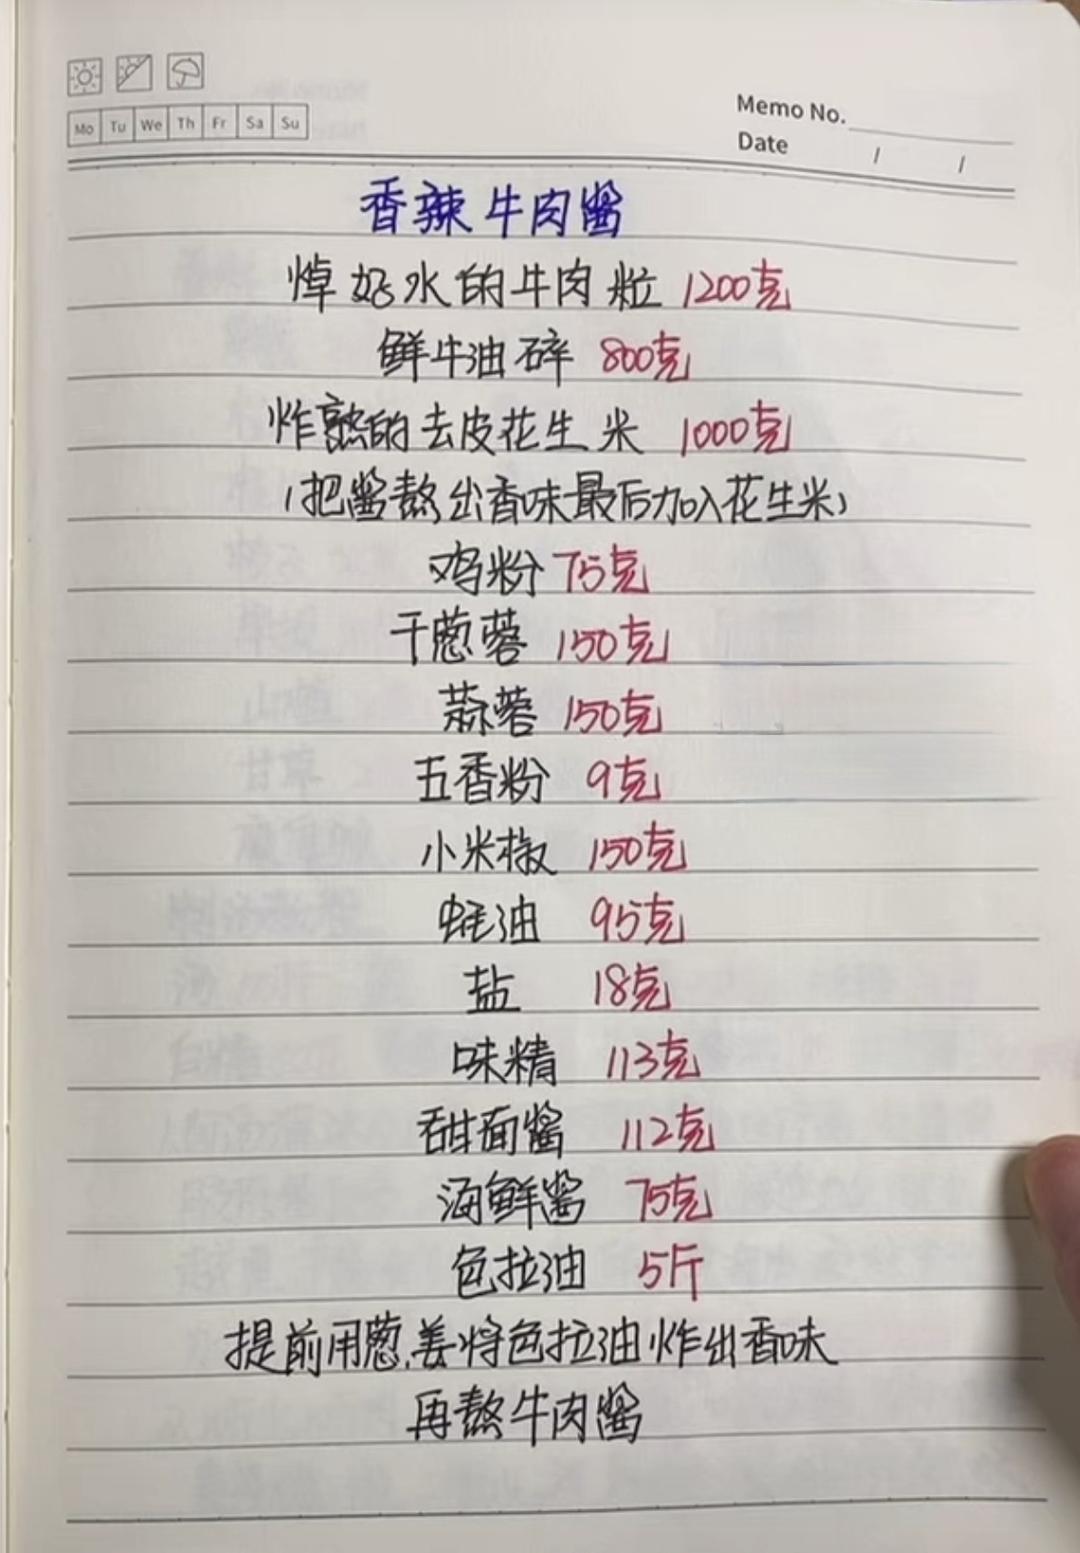 Mo Tu We Th Fr Sa Su
Memo No.
Date / /
香辣牛肉酱
焯好水的牛肉粒 1200克
鲜牛油碎 800克
炸熟的去皮花生米 1000克
(把酱熬出香味最后加入花生米)
鸡粉 75克
干葱蓉 150克
蒜蓉 150克
五香粉 9克
小米椒 150克
蚝油 95克
盐 18克
味精 113克
甜面酱 112克
海鲜酱 75克
色拉油 5斤
提前用葱、姜将色拉油炸出香味
再熬牛肉酱